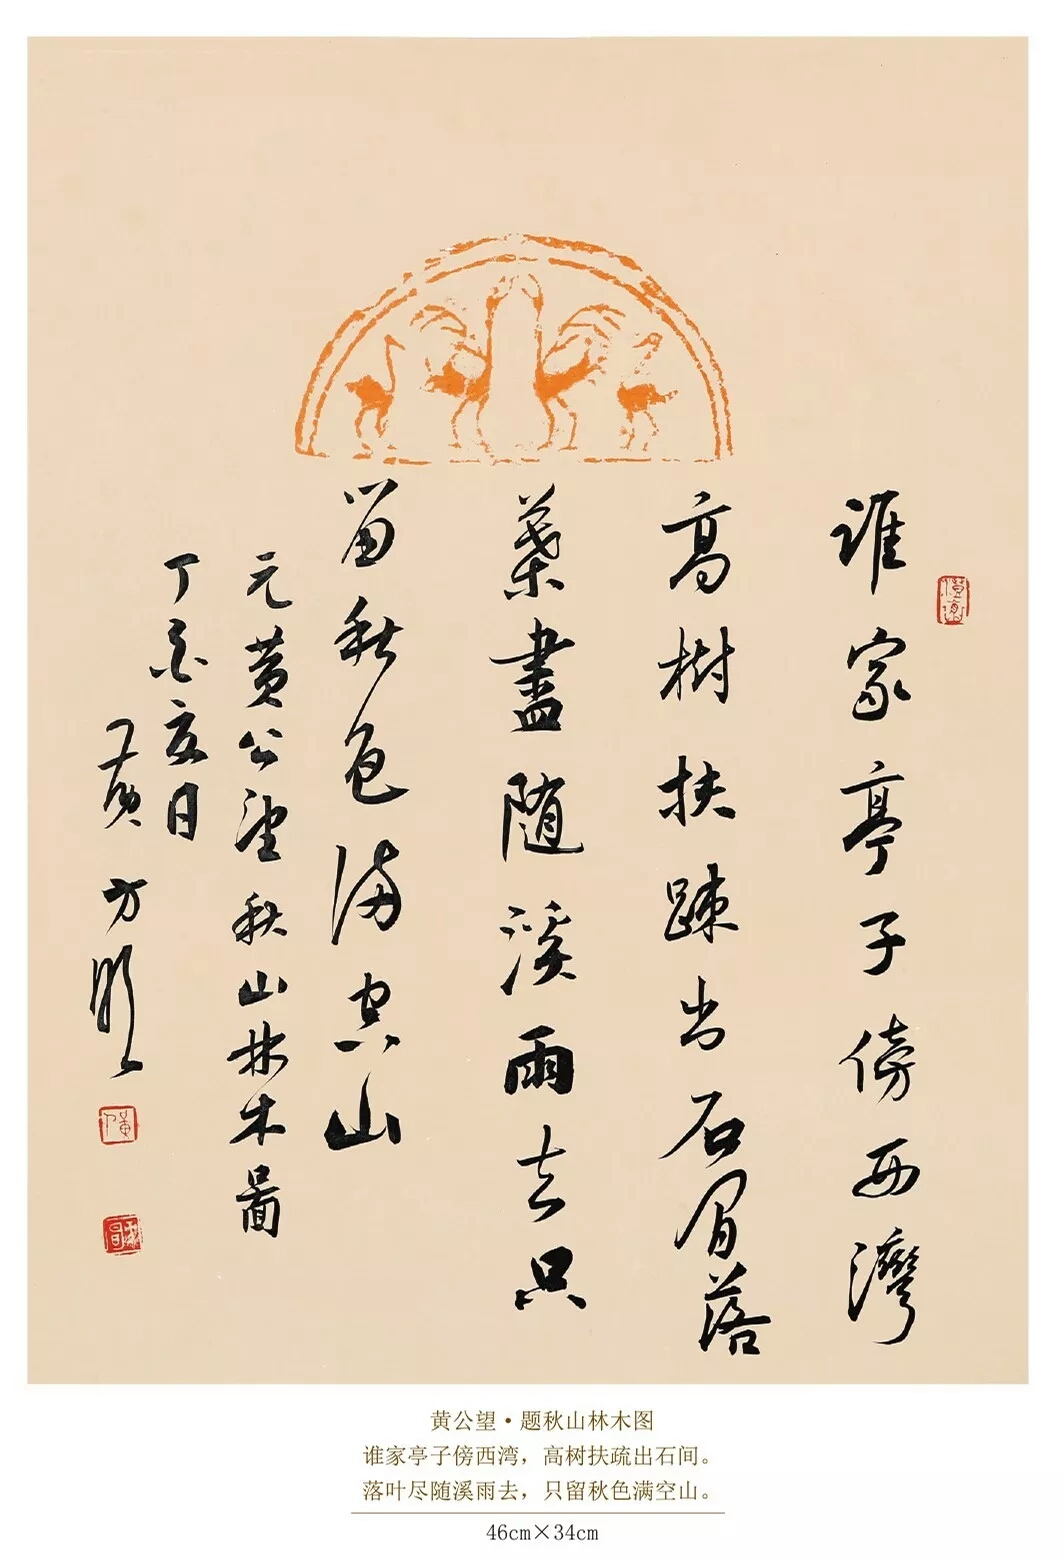 誰家亭子傍西灣
高樹扶疎出石間落
葉盡隨溪雨去只
留秋色滿空山
元黃公望秋山林木圖
丁亥
黃方
黄公望·题秋山林木图
谁家亭子傍西湾，高树扶疏出石间。
落叶尽随溪雨去，只留秋色满空山。
46cm×34cm